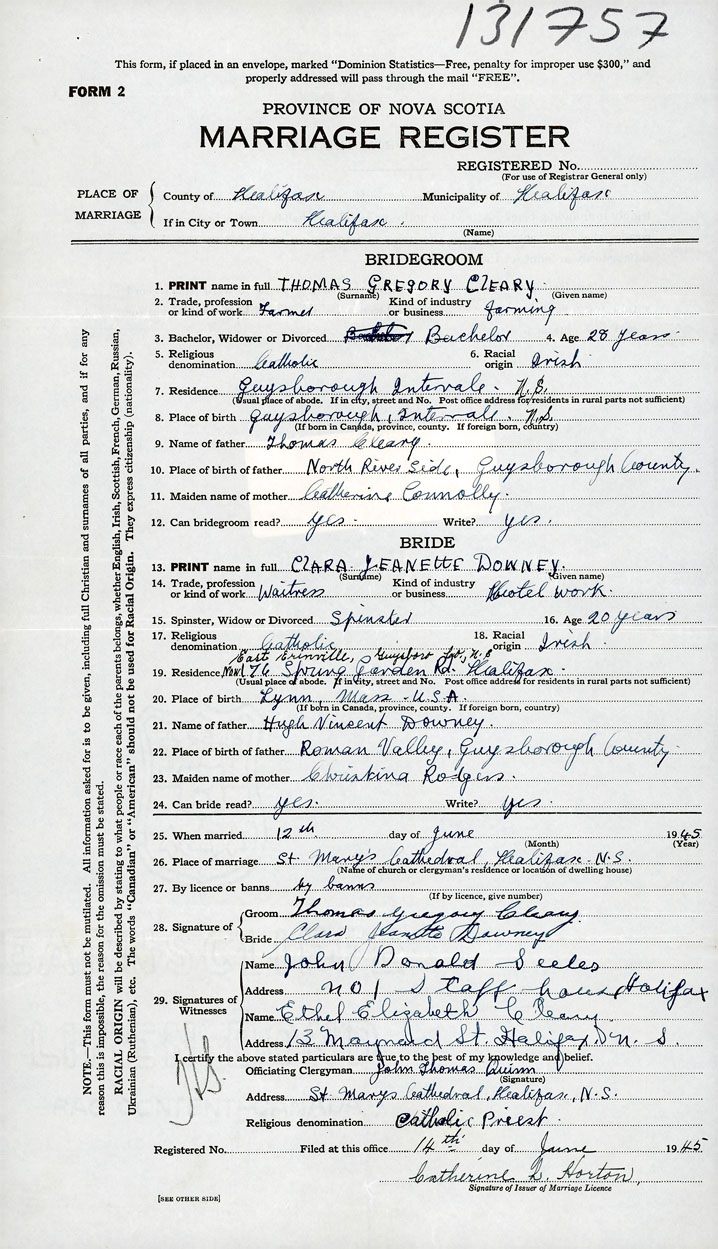 131757
This form, if placed in an envelope, marked "Dominion Statistics—Free, penalty for improper use $300," and
properly addressed will pass through the mail "FREE".
FORM 2
PROVINCE OF NOVA SCOTIA
MARRIAGE REGISTER
REGISTERED No.
(For use of Registrar General only)
PLACE OF MARRIAGE
County of Halifax Municipality of Halifax
If in City or Town Halifax.
(Name)
BRIDEGROOM
1. PRINT name in full THOMAS GREGORY CLEARY.
(Surname) (Given name)
2. Trade, profession or kind of work Farmer Kind of industry or business farming
3. Bachelor, Widower or Divorced Bachelor 4. Age 28 years
5. Religious denomination Catholic 6. Racial origin Irish
7. Residence Guysborough Intervale. N.S.
(Usual place of abode. If in city, street and No. Post office address for residents in rural parts not sufficient)
8. Place of birth Guysborough, Intervale. N.S.
(If born in Canada, province, county. If foreign born, country)
9. Name of father Thomas Cleary.
10. Place of birth of father North River Side, Guysborough County.
11. Maiden name of mother Catherine Connolly.
12. Can bridegroom read? yes. Write? yes.
BRIDE
13. PRINT name in full CLARA JEANETTE DOWNEY.
(Surname) (Given name)
14. Trade, profession or kind of work Waitress Kind of industry or business Hotel work.
15. Spinster, Widow or Divorced Spinster 16. Age 20 years
17. Religious denomination Catholic 18. Racial origin Irish.
East Erinville, Guysboro N.S
19. Residence Now 76 Spring Garden Rd. Halifax.
(Usual place of abode. If in city, street and No. Post office address for residents in rural parts not sufficient)
20. Place of birth Lynn, Mass. U.S.A.
(If born in Canada, province, county. If foreign born, country)
21. Name of father Hugh Vincent Downey.
22. Place of birth of father Roman Valley, Guysborough County.
23. Maiden name of mother Christina Rodgers.
24. Can bride read? yes. Write? yes.
25. When married 12th day of June 1945
(Month) (Year)
26. Place of marriage St. Mary's Cathedral, Halifax. N.S.
(Name of church or clergyman's residence or location of dwelling house)
27. By licence or banns by banns
(If by licence, give number)
28. Signature of
Groom Thomas Gregory Cleary.
Bride Clara Jeanette Downey
29. Signatures of Witnesses
Name John Donald
Address No 1 Staff house Halifax
Name Ethel Elizabeth Cleary
Address 13 Maynard St. Halifax. N. S.
I certify the above stated particulars are true to the best of my knowledge and belief.
Officiating Clergyman John Thomas Quinn
(Signature)
Address St. Marys Cathedral, Halifax, N.S.
Religious denomination Catholic Priest.
Registered No. Filed at this office 14th day of June 1945
Catherine L. Horton,
Signature of Issuer of Marriage Licence
[SEE OTHER SIDE]
NOTE.—This form must not be mutilated. All information asked for is to be given, including full Christian and surnames of all parties, and if for any
reason this is impossible, the reason for the omission must be stated.
RACIAL ORIGIN will be described by stating to what people or race each of the parents belongs, whether English, Irish, Scottish, French, German, Russian,
Ukrainian (Ruthenian), etc. The words "Canadian" or "American" should not be used for Racial Origin. They express citizenship (nationality).